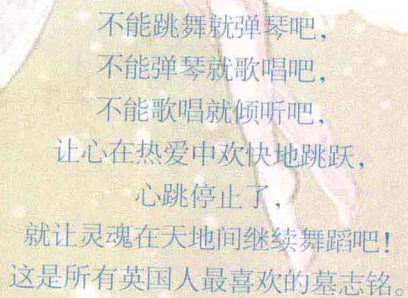 不能跳舞就弹琴吧，
不能弹琴就歌唱吧，
不能歌唱就倾听吧，
让心在热爱中欢快地跳跃，
心跳停止了，
就让灵魂在天地间继续舞蹈吧！
这是所有英国人最喜欢的墓志铭。